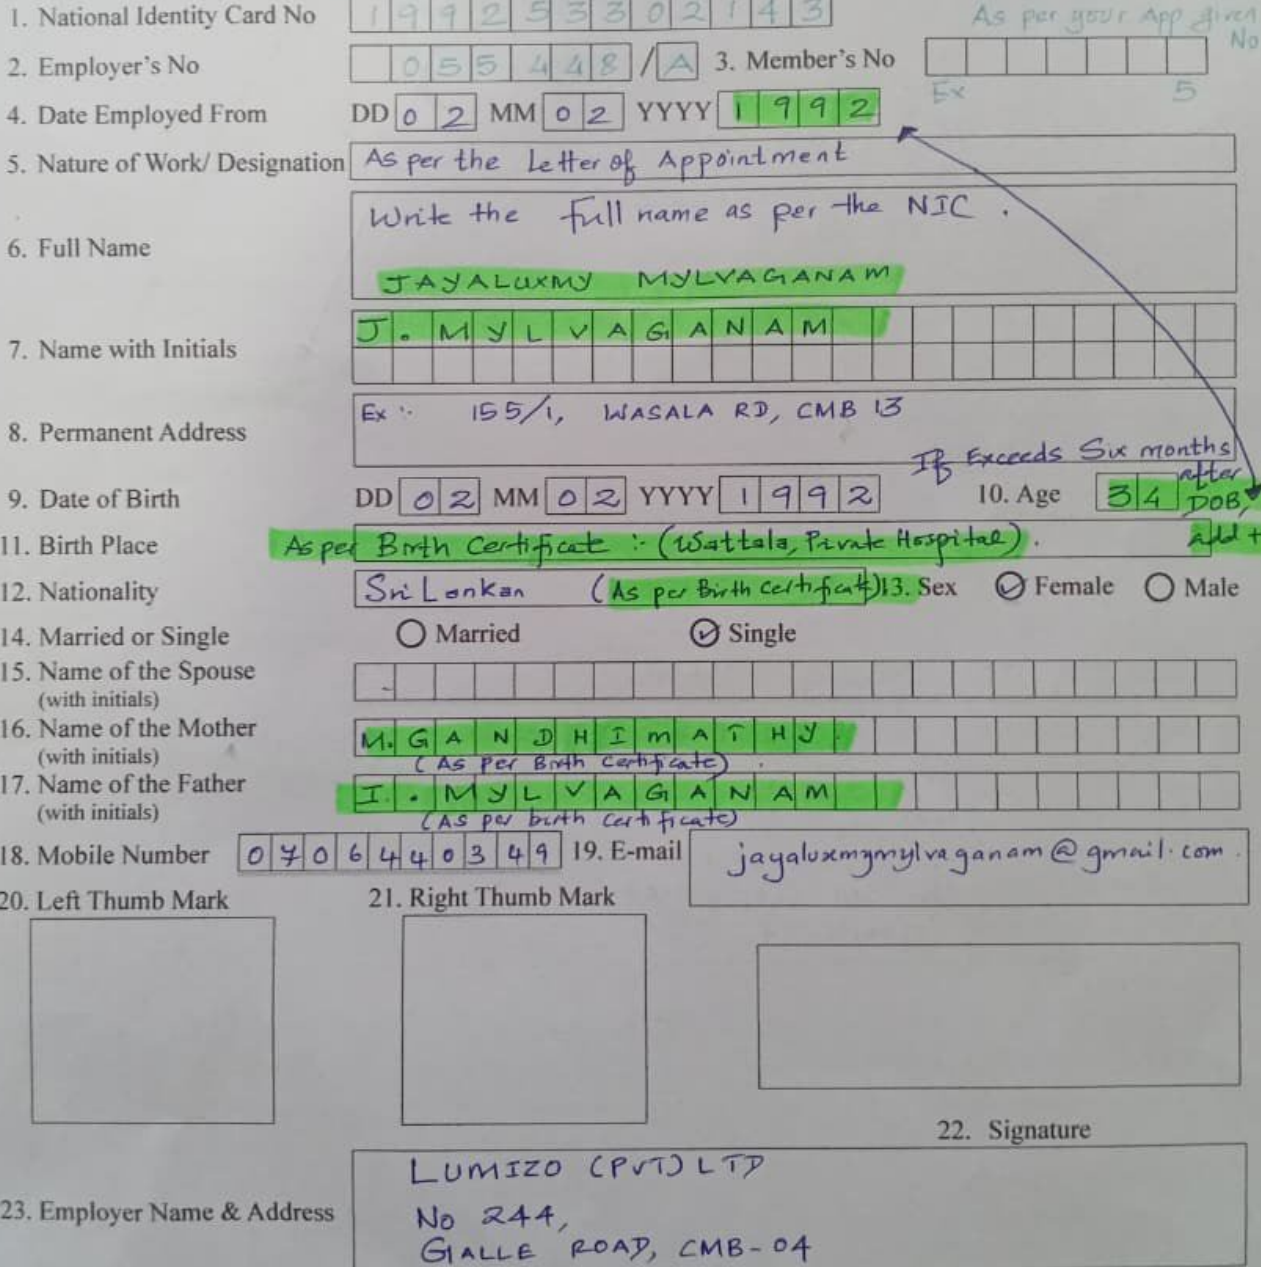 1. National Identity Card No 199253302143
As per your App given No
2. Employer's No 055 448 / A 3. Member's No
Ex 5
4. Date Employed From DD 02 MM 02 YYYY 1992
5. Nature of Work/ Designation As per the Letter of Appointment
Write the full name as per the NIC .
6. Full Name
JAYALUXMY MYLVAGANAM
J. MYLVAGANAM
7. Name with Initials
Ex :- 155/1, WASALA RD, CMB 13
8. Permanent Address
If Exceeds Six months after DOB, add +
9. Date of Birth DD 02 MM 02 YYYY 1992 10. Age 34
11. Birth Place As per Birth Certificate :- (Wattala, Pivate Hospital).
12. Nationality Sri Lankan (As per Birth Certificate) 13. Sex Female Male
14. Married or Single Married Single
15. Name of the Spouse -
(with initials)
16. Name of the Mother M. GANDHIMATHY.
(with initials) (As per Birth Certificate).
17. Name of the Father I. MYLVAGANAM
(with initials) (As per birth certificate)
18. Mobile Number 0706440349 19. E-mail jayaluxmymylvaganam@gmail.com.
20. Left Thumb Mark 21. Right Thumb Mark
22. Signature
LUMIZO (PVT) LTD
23. Employer Name & Address No 244,
GALLE ROAD, CMB-04